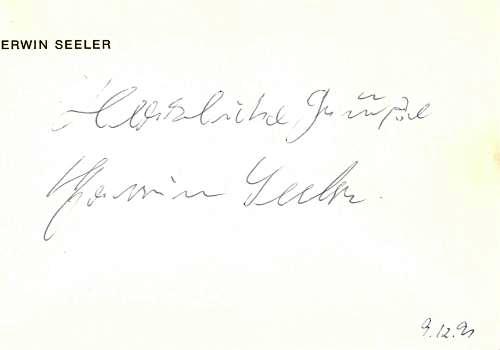 ERWIN SEELER
Herzliche Grüße
Erwin Seeler
9.12.91